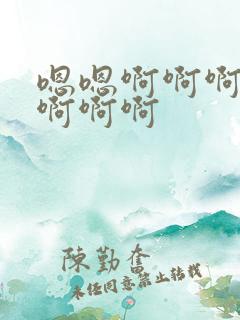 嗯嗯啊啊啊
啊啊啊
陈勤奋
未经同意禁止转载